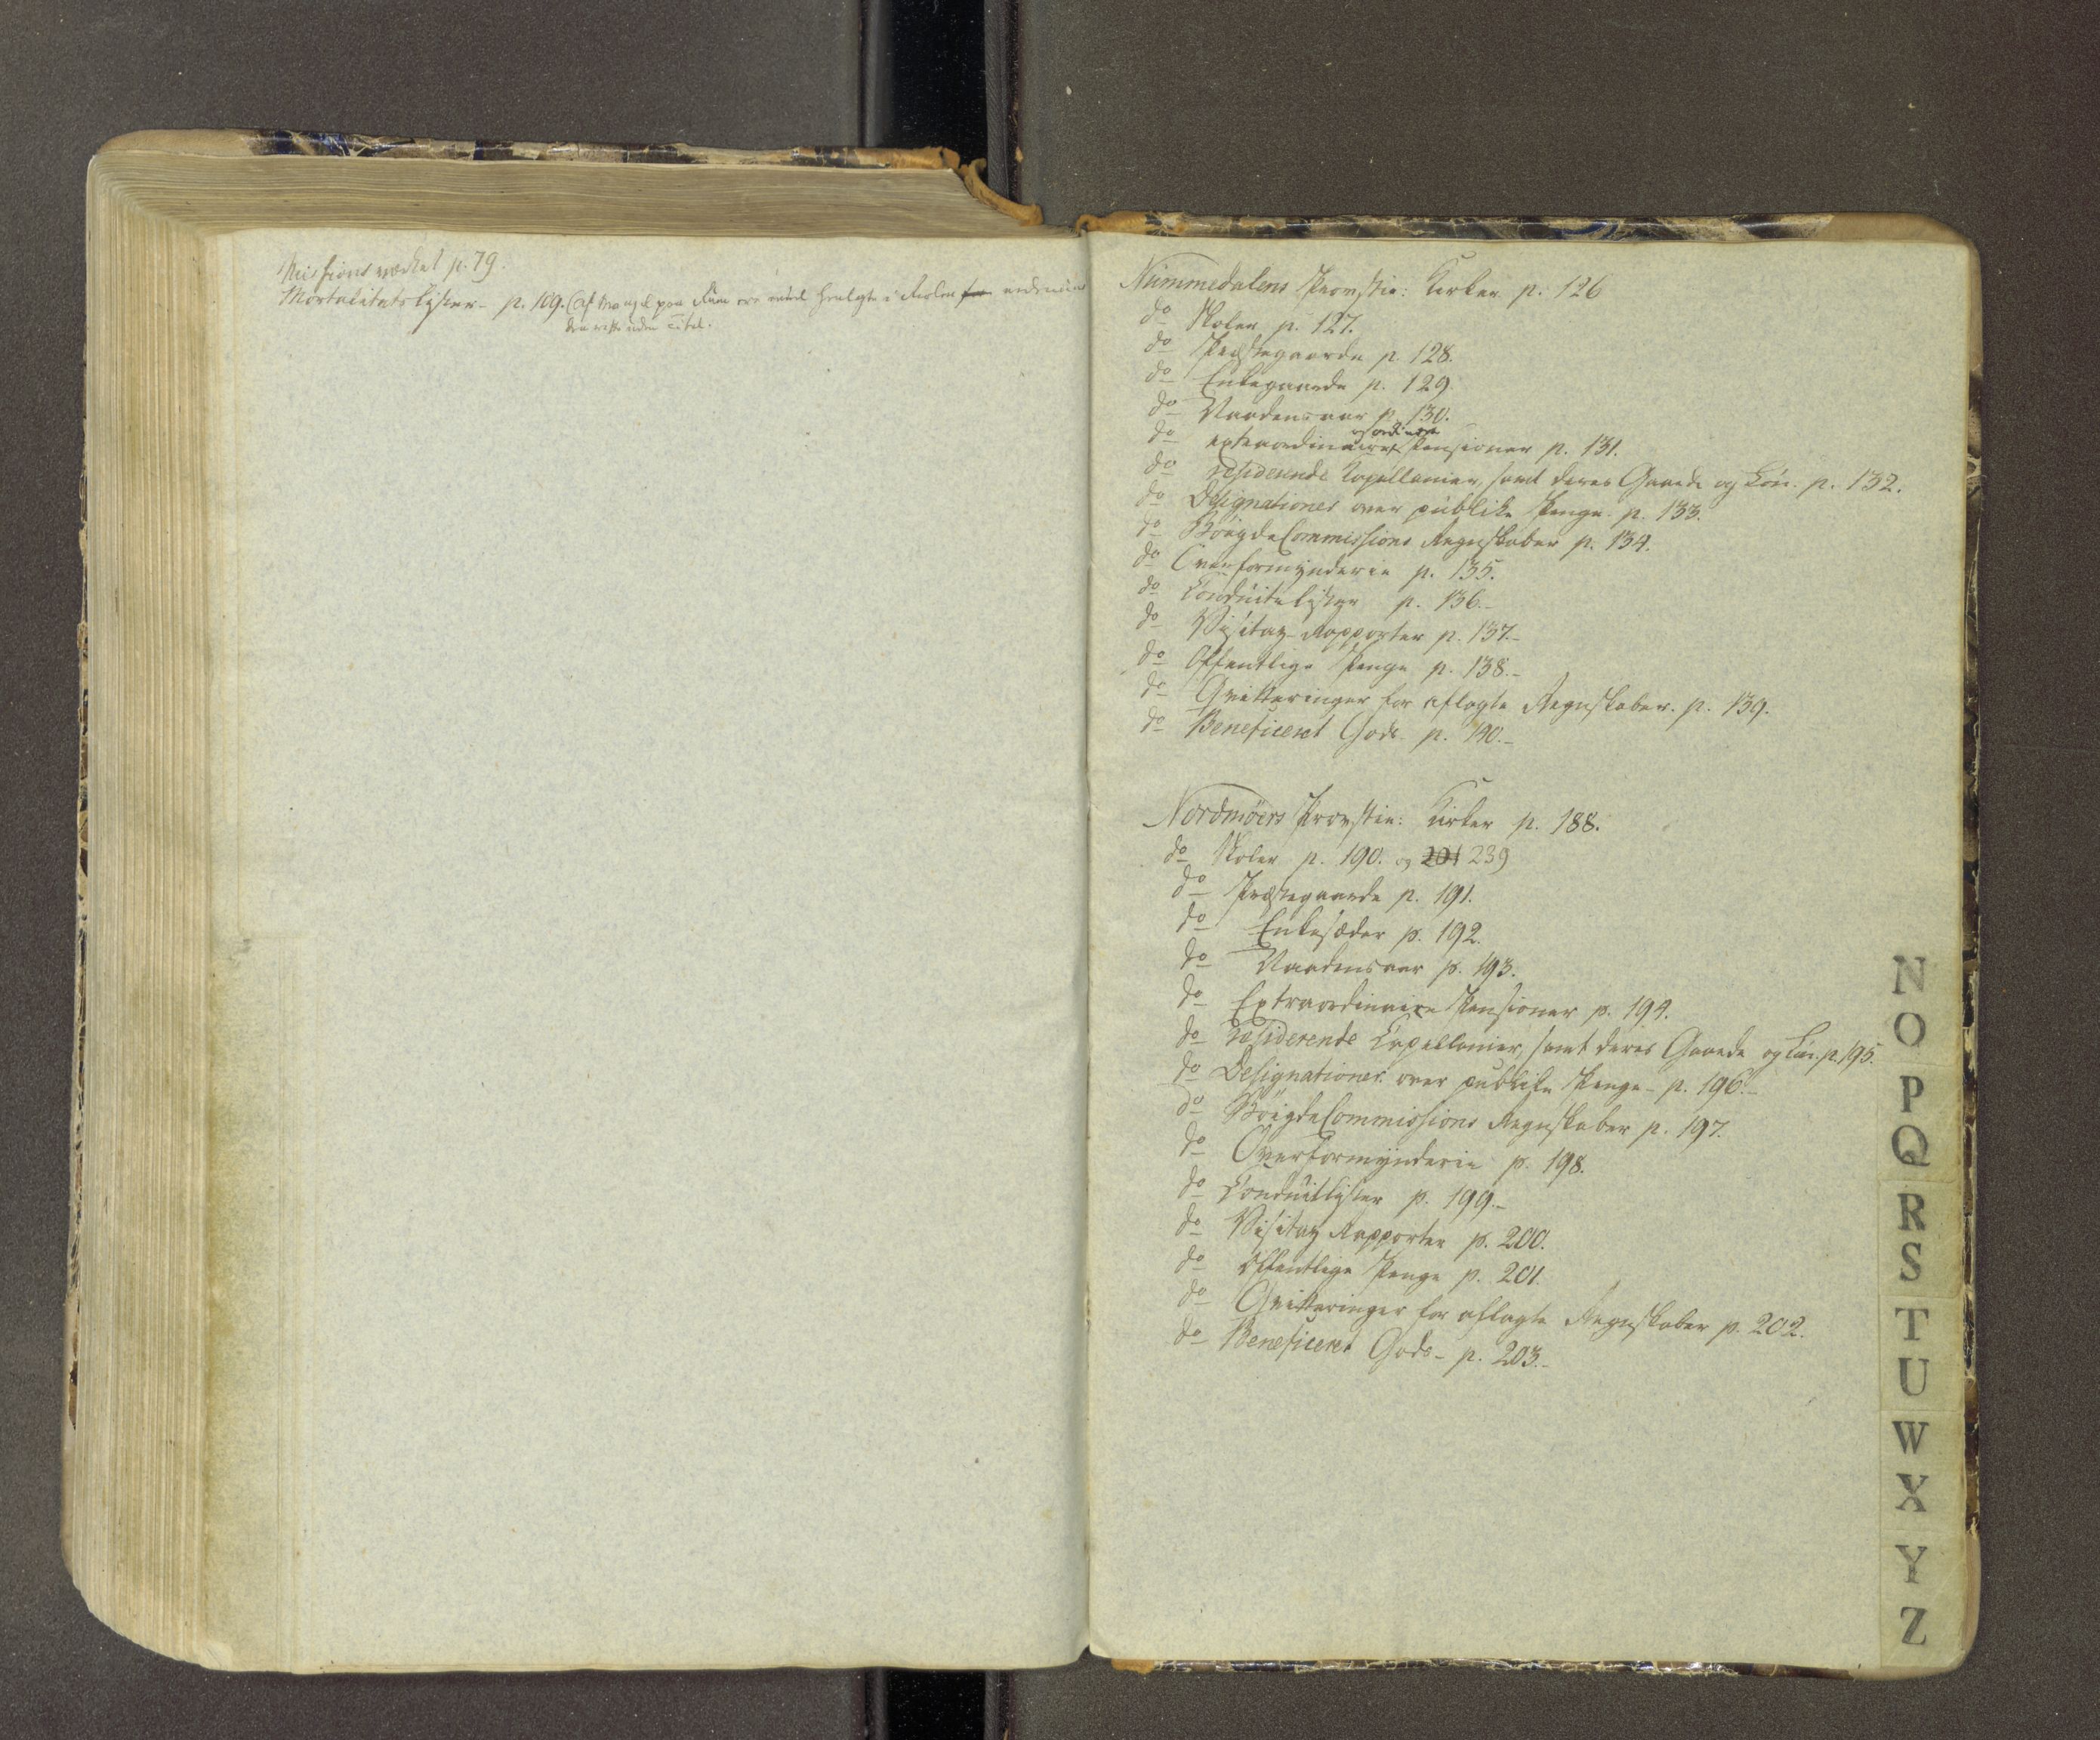 Missions værket p. 79.
Mortalitets lister - p. 109. (af Mangel paa Rum ere henlagte i Reolen
Nummedalens Provstie: Kirker p. 126
do Skoler p. 127.
do Præstegaarde p. 128.
do Enkegaarde p. 129.
do Naadensaar p. 130.
og ordinære
do extraordinaire Pensioner p. 131.
do residerende Capellanier, samt deres Gaarde og Løn. p. 132.
do Designationer over publike Penge p. 133.
do BöigdeCommissions Regnskaber p. 134.
do Overformynderie p. 135.
do Conduitelister p. 136.-
do Visitaz-Rapporter p. 137.-
do Offentlige Penge p. 138.-
do Qvitteringer for aflagte Regnskaber. p. 139.
do Beneficeret Gods p. 140.-
Nordmöers Provstie: Kirker p. 188.
do Skoler p. 190. og 201 239
do Præstegaarde p. 191.
do Enkesæder p. 192.
do Naadensaar p. 193.
do Extraordinaire Pensioner p. 194.
do residerende Capellanier, samt deres Gaarde og Løn. p. 195.
do Designationer over publike Penge - p. 196.-
do BöigdeCommissions Regnskaber p. 197.
do Overformynderie p. 198.
do Conduitlister p. 199.-
do Visitaz Rapporter p. 200.
do Offentlige Penge p. 201.
do Qvitteringer for aflagte Regnskaber p. 202.
do Beneficeret Gods - p. 203.-
N
O
P
Q
R
S
T
U
W
X
Y
Z